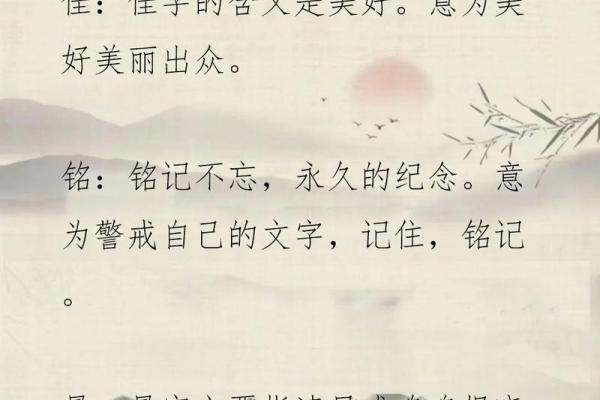 佳：佳字的含义是美好。意为美
好美丽出众。
铭：铭记不忘，永久的纪念。意
为警戒自己的文字，记住，铭记
。